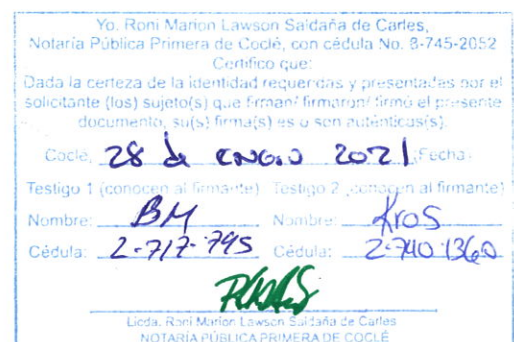 Yo. Roni Marion Lawson Saldaña de Carles,
Notaría Pública Primera de Coclé, con cédula No. 8-745-2052
Certifico que:
Dada la certeza de la identidad requeridas y presentadas por el
solicitante (los) sujeto(s) que firman/ firmaron/ firmó el presente
documento, su(s) firma(s) es o son auténticas(s).
Coclé, 28 de enero 2021 Fecha
Testigo 1 (conocen al firmante) Testigo 2 (conocen al firmante)
Nombre: BM Nombre: KroS
Cédula: 2-717-795 Cédula: 2-740-1360
Licda. Roni Marion Lawson Saldaña de Carles
NOTARÍA PÚBLICA PRIMERA DE COCLÉ